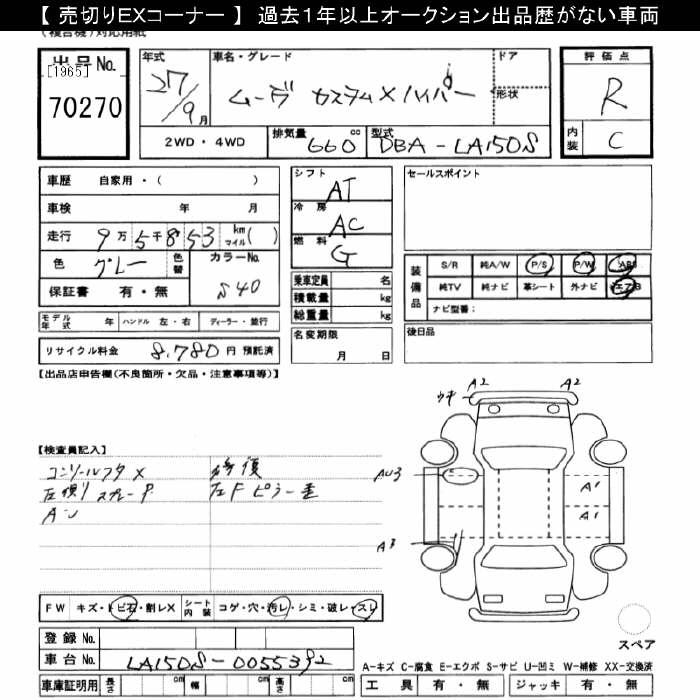 【 売切りEXコーナー 】 過去1年以上オークション出品歴がない車両
(複合機)対応用紙
出品No.
[1965]
70270
年式
27/9月
車名・グレード
ムーヴ カスタム X ハイパー
ドア
形状
2WD・4WD
排気量
660 cc
型式
DBA-LA150S
評価点
R
内装
C
車歴 自家用・( )
車検 年 月
走行 9万5千853 km マイル( )
色 グレー
色替
カラーNo.
S40
保証書 有・無
シフト
AT
冷房
AC
燃料
G
乗車定員 名
積載量 kg
総重量 kg
セールスポイント
装備品
S/R 純A/W P/S P/W ABS
純TV 純ナビ 革シート 外ナビ エアB
ナビ型番:
モデル年式 年 ハンドル 左・右 ディーラー・並行
リサイクル料金 8,780円 預託済
名変期限
月 日
後日品
【出品店申告欄(不良箇所・欠品・注意事項等)】
A2 A2
ウキ
【検査員記入】
修復
左Fピラー
AU3
A1
A1
A3
FW キズ・トビ石・割レX
シート内装 コゲ・穴・汚レ・シミ・破レ・スレ
登録 No.
車台 No. LA150S-0055392
車庫証明用 長さ cm 幅 cm 高さ cm
スペア
A-キズ C-腐食 E-エクボ S-サビ U-凹ミ W-補修 XX-交換済
工具 有・無 ジャッキ 有・無